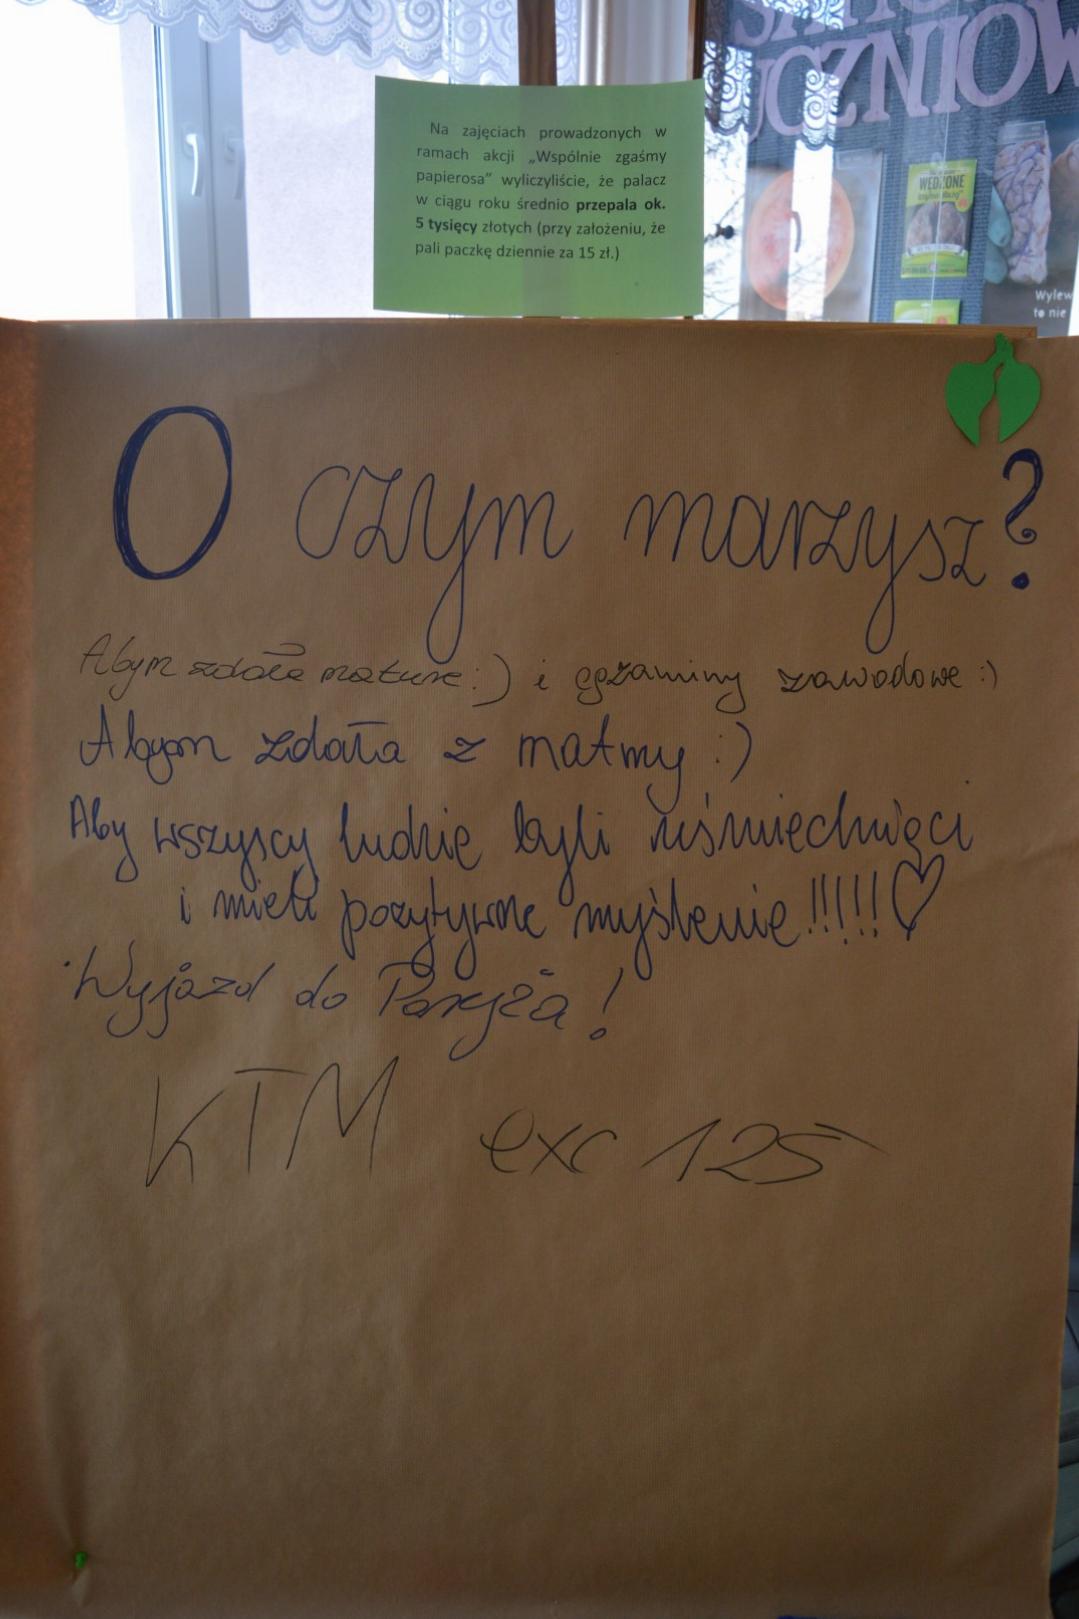 SAMO
UCZNIOW
Na zajęciach prowadzonych w
ramach akcji „Wspólnie zgaśmy
papierosa” wyliczyliście, że palacz
w ciągu roku średnio przepala ok.
5 tysięcy złotych (przy założeniu, że
pali paczkę dziennie za 15 zł.)
WĘDZONE
Wylew
to nie
O czym marzysz?
Abym zdała maturę :) i egzaminy zawodowe :)
Abym zdała z matmy :)
Aby wszyscy ludzie byli uśmiechnięci
i mieli pozytywne myślenie!!!!!! ♡
Wyjazd do Paryża!
KTM exc 125